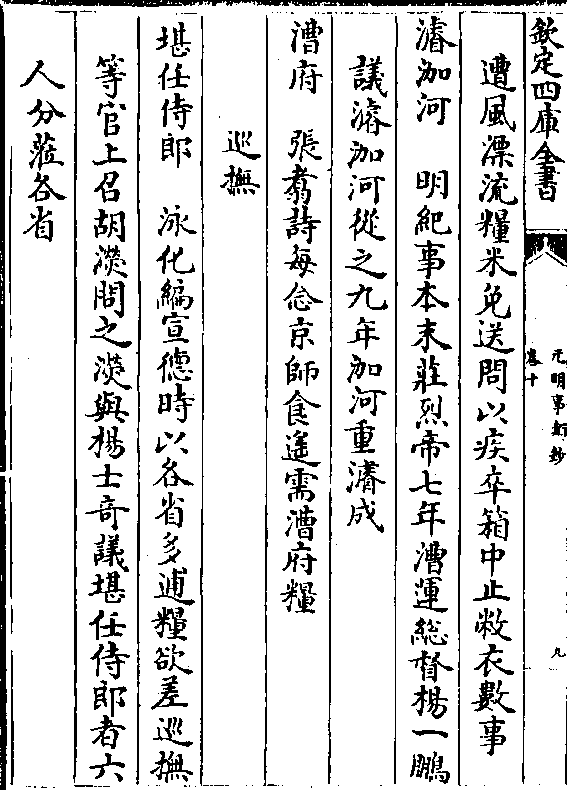 欽定四庫全書
元明事類鈔
卷十
九
遭風漂流糧米免送問以疾卒箱中止敝衣數事
濬泇河　明紀事本末莊烈帝七年漕運総督楊一鵬
議濬泇河從之九年泇河重濬成
漕府　張翥詩每念京師食遙需漕府糧
巡撫
堪任侍郎　泳化編宣德時以各省多逋糧欲差巡撫
等官上召胡濙問之濙與楊士竒議堪任侍郎者六
人分蒞各省